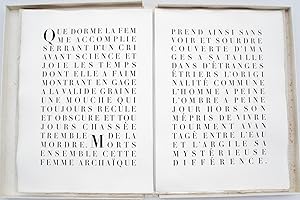 QUE DORME LA FEM
ME ACCOMPLIE
SERRANT D'UN CRI
AVANT SCIENCE ET
JOIE LES TEMPS
DONT ELLE A FAIM
MONTRANT EN GAGE
A LA VALIDE GRAINE
UNE MOUCHE QUI
TOUJOURS RECULE
ET OBSCURE ET TOU
JOURS CHASSÉE
TREMBLE DE LA
MORDRE. MORTS
ENSEMBLE CETTE
FEMME ARCHAÏQUE
PREND AINSI SANS
VOIR ET SOURDRE
COUVERTE D'IMA
GES A SA TAILLE
DANS D'ÉTRANGES
ÉTRIERS L'ORIGI
NALITÉ COMMUNE
L'HOMME A PEINE
L'OMBRE A PEINE
JOUR HORS SON
MÉPRIS DE VIVRE
TOURMENT AVAN
TAGE ENTRE L'EAU
ET L'ARGILE SA
MYSTÉRIEUSE
DIFFÉRENCE.